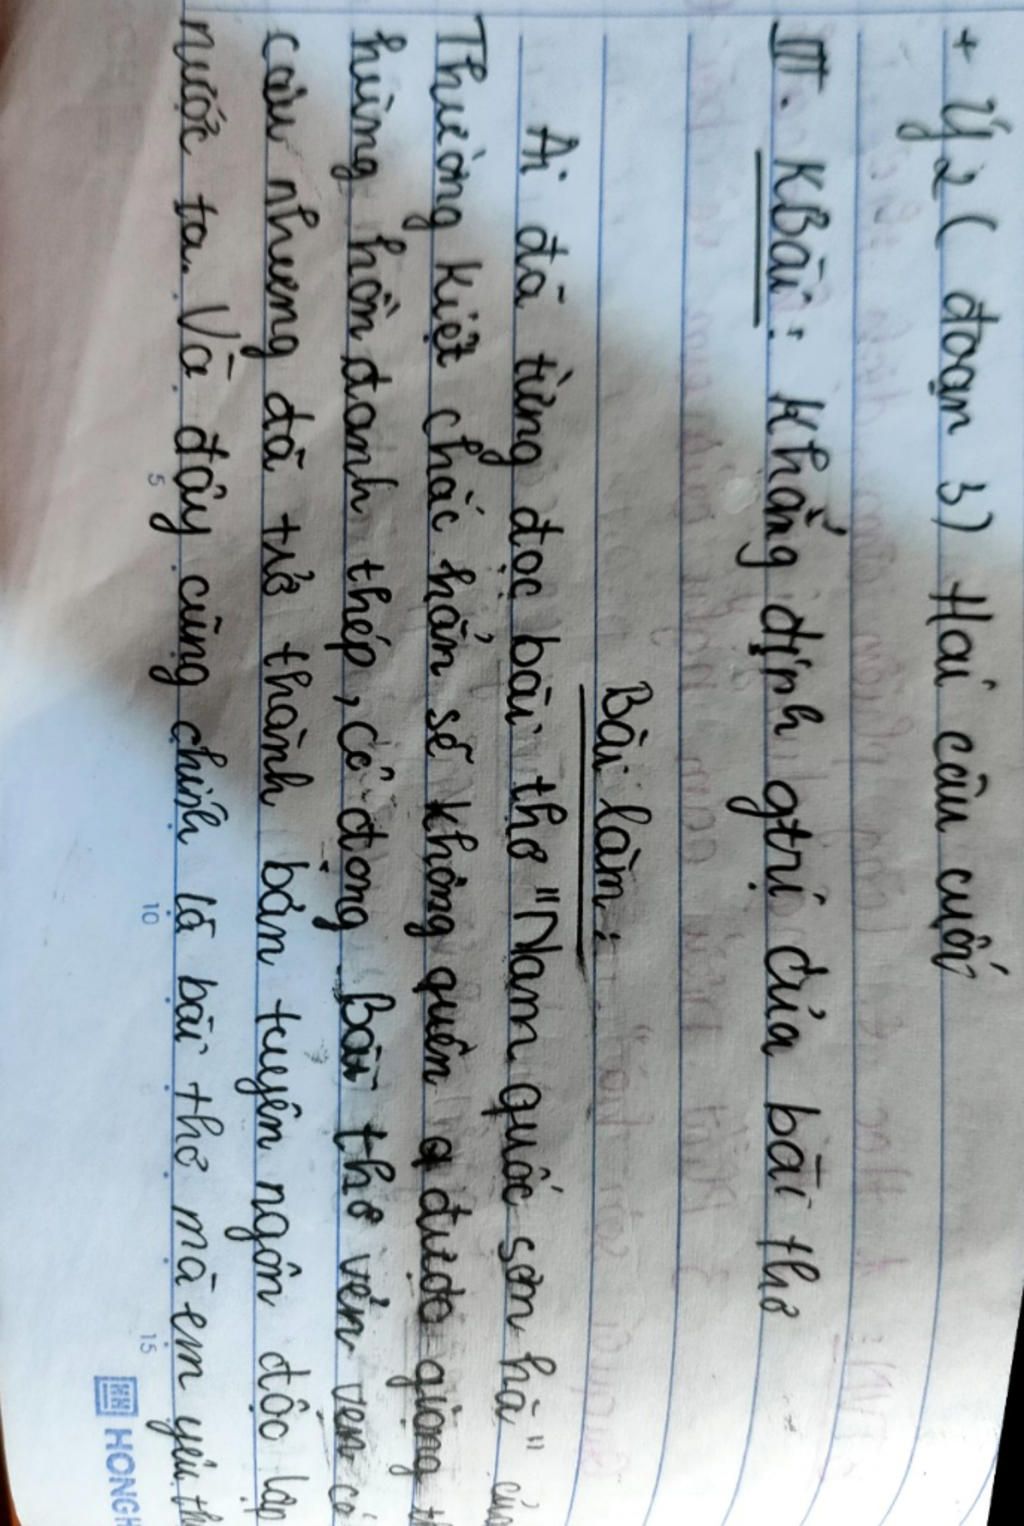 + Ý 2 ( đoạn 3) Hai câu cuối
III. KBài: Khẳng định gtrị của bài thơ
Bài làm:
Ai đã từng đọc bài thơ "Nam quốc sơn hà" của
Thường Kiệt chắc hẳn sẽ không quên được giọng
hùng hồn đanh thép, cô đọng Bài thơ vẻn vẹn có
câu nhưng đã trở thành bản tuyên ngôn độc lập
nước ta. Và đây cũng chính là bài thơ mà em yêu
5 10 15
HONGH